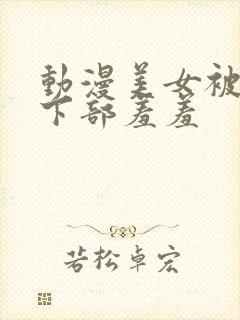 動漫美女被
下部羞羞
若松卓宏